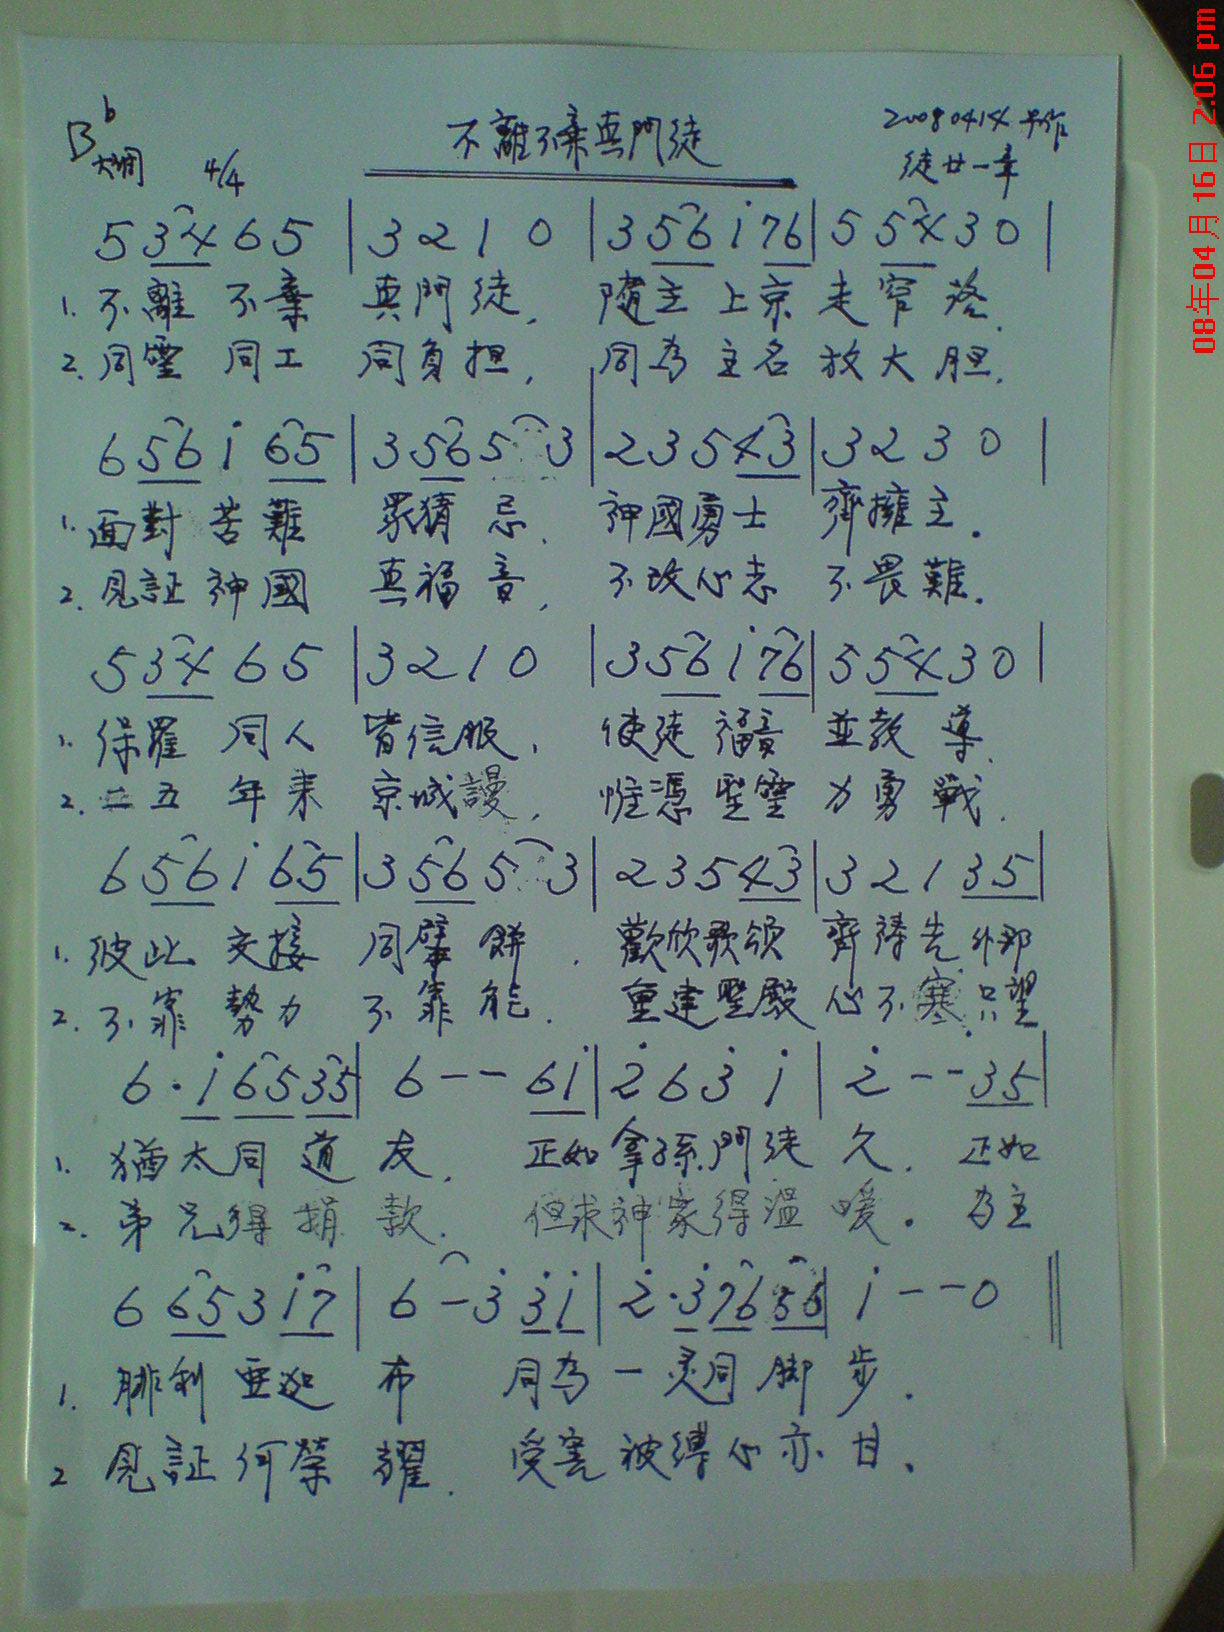 08年04月16日 2:06 pm
B b 大調 4/4
不離不棄真門徒
20080414 早作
徒廿一章
5 34 6 5 | 3 2 1 0 | 3 56 i 76 | 5 54 3 0 |
1. 不離不棄 真門徒, 隨主上京走窄路.
2. 同靈同工 同負担, 同為主名放大胆.
6 56 i 65 | 3 56 5 3 | 2 3 5 43 | 3 2 3 0 |
1. 面對苦難 眾猜忌, 神國勇士 齊擁主.
2. 見証神國 真福音, 不改心志 不畏難.
5 34 6 5 | 3 2 1 0 | 3 56 i 76 | 5 54 3 0 |
1. 保羅同人 皆信服, 使徒福音 並教導.
2. 二五年来 京城謾, 惟憑聖靈 力勇戰.
6 56 i 65 | 3 56 5 3 | 2 3 5 43 | 3 2 1 35 |
1. 彼此交接 同擘餅. 歡欣歌頌 齊禱告 外邦
2. 不靠勢力 不靠能. 重建聖殿 心不寒 只望
6 · i 65 35 | 6 - - 6i | 2̇ 6 3̇ i | 2̇ - - 35 |
1. 猶太同道友. 正如拿孫門徒久. 正如
2. 弟兄得捐款. 但求神家得溫暖. 為主
6 65 3 i7 | 6 - 3̇ 3̇i | 2̇ · 3̇ 76 56 | i - - 0 ||
1. 腓利亞迦布 同為一灵同脚步.
2 見証何榮耀. 受害被縛心亦甘.